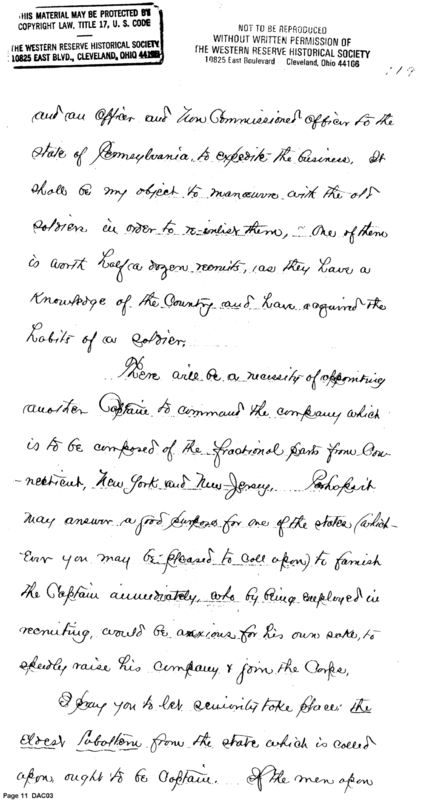 THIS MATERIAL MAY BE PROTECTED BY
COPYRIGHT LAW, TITLE 17, U. S. CODE
THE WESTERN RESERVE HISTORICAL SOCIETY
10825 EAST BLVD., CLEVELAND, OHIO 44106
NOT TO BE REPRODUCED
WITHOUT WRITTEN PERMISSION OF
THE WESTERN RESERVE HISTORICAL SOCIETY
10825 East Boulevard Cleveland, Ohio 44106
and an Officer and Non Commissioned Officer to the
state of Pennsylvania, to expedite the business. It
shall be my object to manoeuvre with the old
soldiers in order to re-enlist them, One of them
is worth half a dozen recruits, as they have a
Knowledge of the Country and have acquired the
habits of a soldier.
There will be a necessity of appointing
another Captain to command the company which
is to be composed of the fractional parts from Con-
necticut, New York and New-Jersey. Perhaps it
may answer a good purpose for one of the states (which-
-Ever you may be pleased to call upon) to furnish
the Captain immediately, who by being employed in
recruiting, would be anxious for his own sake, to
speedly raise his company & join the Corps.
I pray you to let seniority take place: the
eldest Subaltern from the state which is called
upon, ought to be Captain. If the men upon
Page 11 DAC03